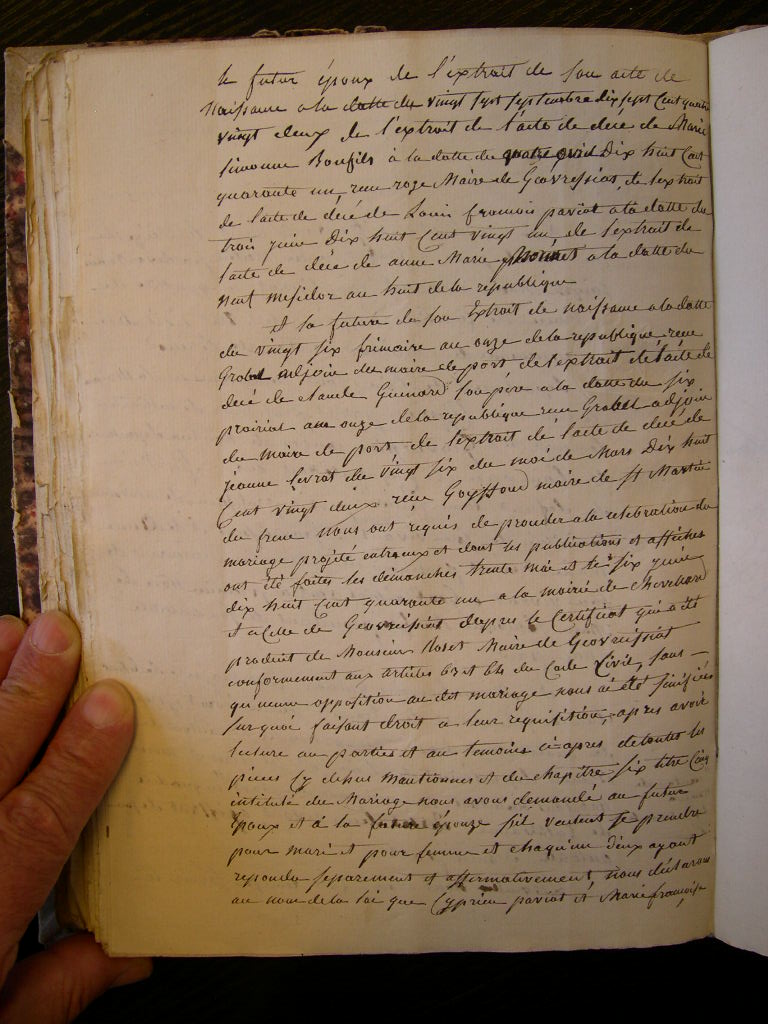 le futur époux de l'extrait de son acte de
Naissance a la datte du vingt sept septembre dix sept Cent quatre
vingt deux de l'extrait de l'acte de décé de Marie
simonne Bonfils à la datte du quatre avril Dix huit Cent
quarante un, reçu roze Maire de Géovressiat, de l'extrait
de l'acte de décé de Louis françois paviot a la datte du
trois juin Dix huit Cent vingt un, de l'extrait de
l'acte de décé de anne Marie a la datte du
neuf messidor an huit de la république
Et la future de son Extrait de naissance a la datte
du vingt six frimaire an onze de la république reçu
adjoin du maire de port de l'extrait de l'acte de
décé de claude Guinard son père a la datte du six
prairial an onze de la république reçu adjoin
du maire de port de l'extrait de l'acte de décé de
jeanne livrat du vingt six du moi de Mars Dix huit
Cent vingt deux, reçu maire de st Martin
du frene nous ont requis de proceder a la celebration du
mariage projété entreux et dont les publications et affiches
ont été faites les démanches trente mai et six juin
dix huit Cent quarante un, a la mairie de
Et a Celle de Géovressiat depres le Certificat qui a été
produit de Monsieur Maire de Géovressiat
conformement aux articles 63 et 64 du Code Civil, sans
qu'aucune opposition au dit mariage nous ai été sinifiés
sur quoi faisant droit a leur requisition, apres avoir
lecture au parties et au temoins ci-apres de toutes les
pieces cy dessus mantionnes et du chapitre six titre Cinq
intitulé du Mariage nous avons demandé au futur
époux et à la future épouze s'il veulent se prendre
pour mari et pour femme et chaqu'un d'eux ayant
repondu séparement et affirmativement, nous déclarons
au nom de la loi que Cyprien paviot et Marie françoise